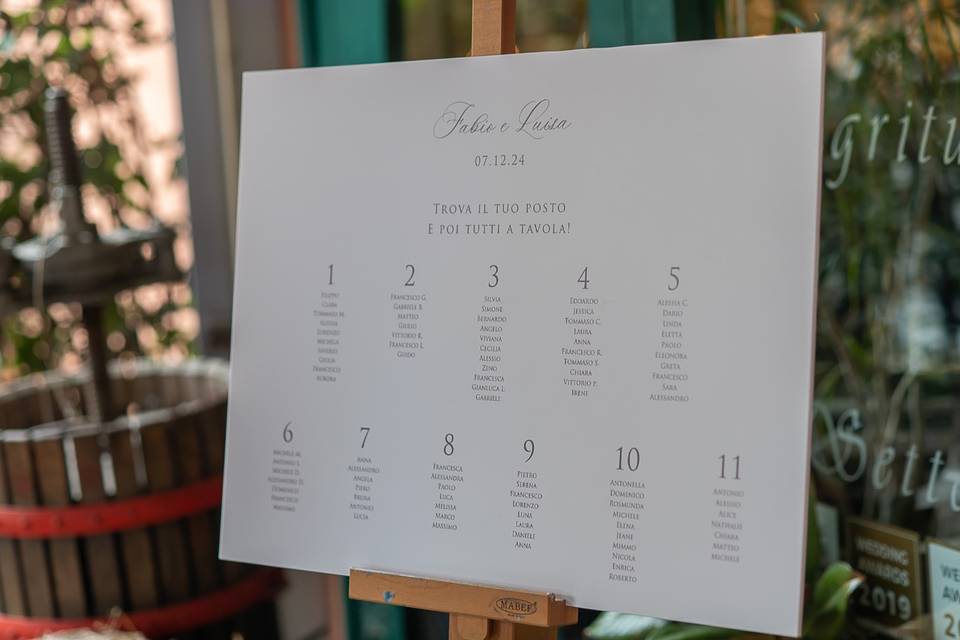 Fabio e Luisa
07.12.24
TROVA IL TUO POSTO
E POI TUTTI A TAVOLA!
1
FILIPPO
CLARA
TOMMASO M.
ALESSIA
LORENZO
MICHELA
SAVERIO
GIULIA
FRANCESCO
AURORA
2
FRANCESCO G.
GABRIELE B.
MATTEO
GIULIO
VITTORIO R.
FRANCESCO L.
GUIDO
3
SILVIA
SIMONE
BERNARDO
ANGELO
VIVIANA
CECILIA
ALESSIO
ZENO
FRANCESCA
GIANLUCA L.
GABRIELE
4
EDOARDO
JESSICA
TOMMASO C.
LAURA
ANNA
FRANCESCO R.
TOMMASO S.
CHIARA
VITTORIO P.
IRENE
5
ALESSIA C.
DARIO
LINDA
ELETTA
PAOLO
ELEONORA
GRETA
FRANCESCO
SARA
ALESSANDRO
6
MICHELE M.
ANTONIO L.
MICHELE D.
ALESSANDRO D.
DOMENICO
FRANCESCO
MASSIMO
7
ANNA
ALESSANDRO
ANGELA
PIERO
BRUNA
ANTONIO
LUCIA
8
FRANCESCA
ALESSANDRA
PAOLO
LUCA
MELISSA
MARCO
MASSIMO
9
PIETRO
SERENA
FRANCESCO
LORENZO
LUNA
LAURA
DANIELE
ANNA
10
ANTONELLA
DOMENICO
ROSMUNDA
MICHELE
ELENA
JEANE
MIMMO
NICOLA
ENRICA
ROBERTO
11
ANTONIO
ALESSIO
ALICE
NATHALIE
CHIARA
MATTEO
MICHELE
MABEF
gritu
Sette
WEDDING
AWARDS
2019
WE
AW
2